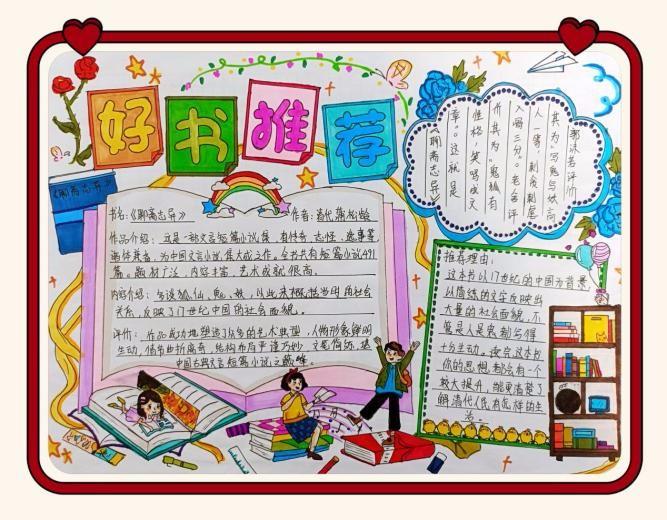 好书推荐
《聊斋志异》
书名:《聊斋志异》 作者:清代蒲松龄
作品介绍:这是一部文言短篇小说集,有传奇、志怪、逸事等
诸体兼备,为中国文言小说集大成之作。全书共有短篇小说491
篇。题材广泛,内容丰富,艺术成就很高。
内容介绍:多谈狐、仙、鬼、妖,以此来概括当时的社会
关系,反映了17世纪中国的社会面貌。
评价:作品成功地塑造了众多的艺术典型,人物形象鲜明
生动,情节曲折离奇,结构布局严谨巧妙,文笔简练,是
中国古典文言短篇小说之巅峰。
郭沫若评价
其为“写鬼写妖高
人一等,刺贪刺虐
入骨三分。”老舍评
价其为“鬼狐有
性格,笑骂成文
章。”这就是
《聊斋志异》
推荐理由:
这本书以17世纪的中国为背景,
以简练的文字反映出
大量的社会面貌,不
管是人是鬼都写得
十分生动。读完这本书
你的思想都会有一个
较大提升,能更清楚了
解清代人民有怎样的生
活。